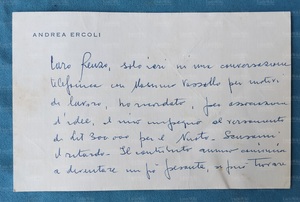 ANDREA ERCOLI
Caro Renzo, solo ieri in una conversazione
telefonica con Massimo Vessella per motivi
di lavoro, ho ricordato, per associazione
d'idee, il mio impegno al versamento
di Lit 300000 per il Nuoto. Scusami
il ritardo. Il contributo annuo comincia
a diventare un po' pesante, si può trovare